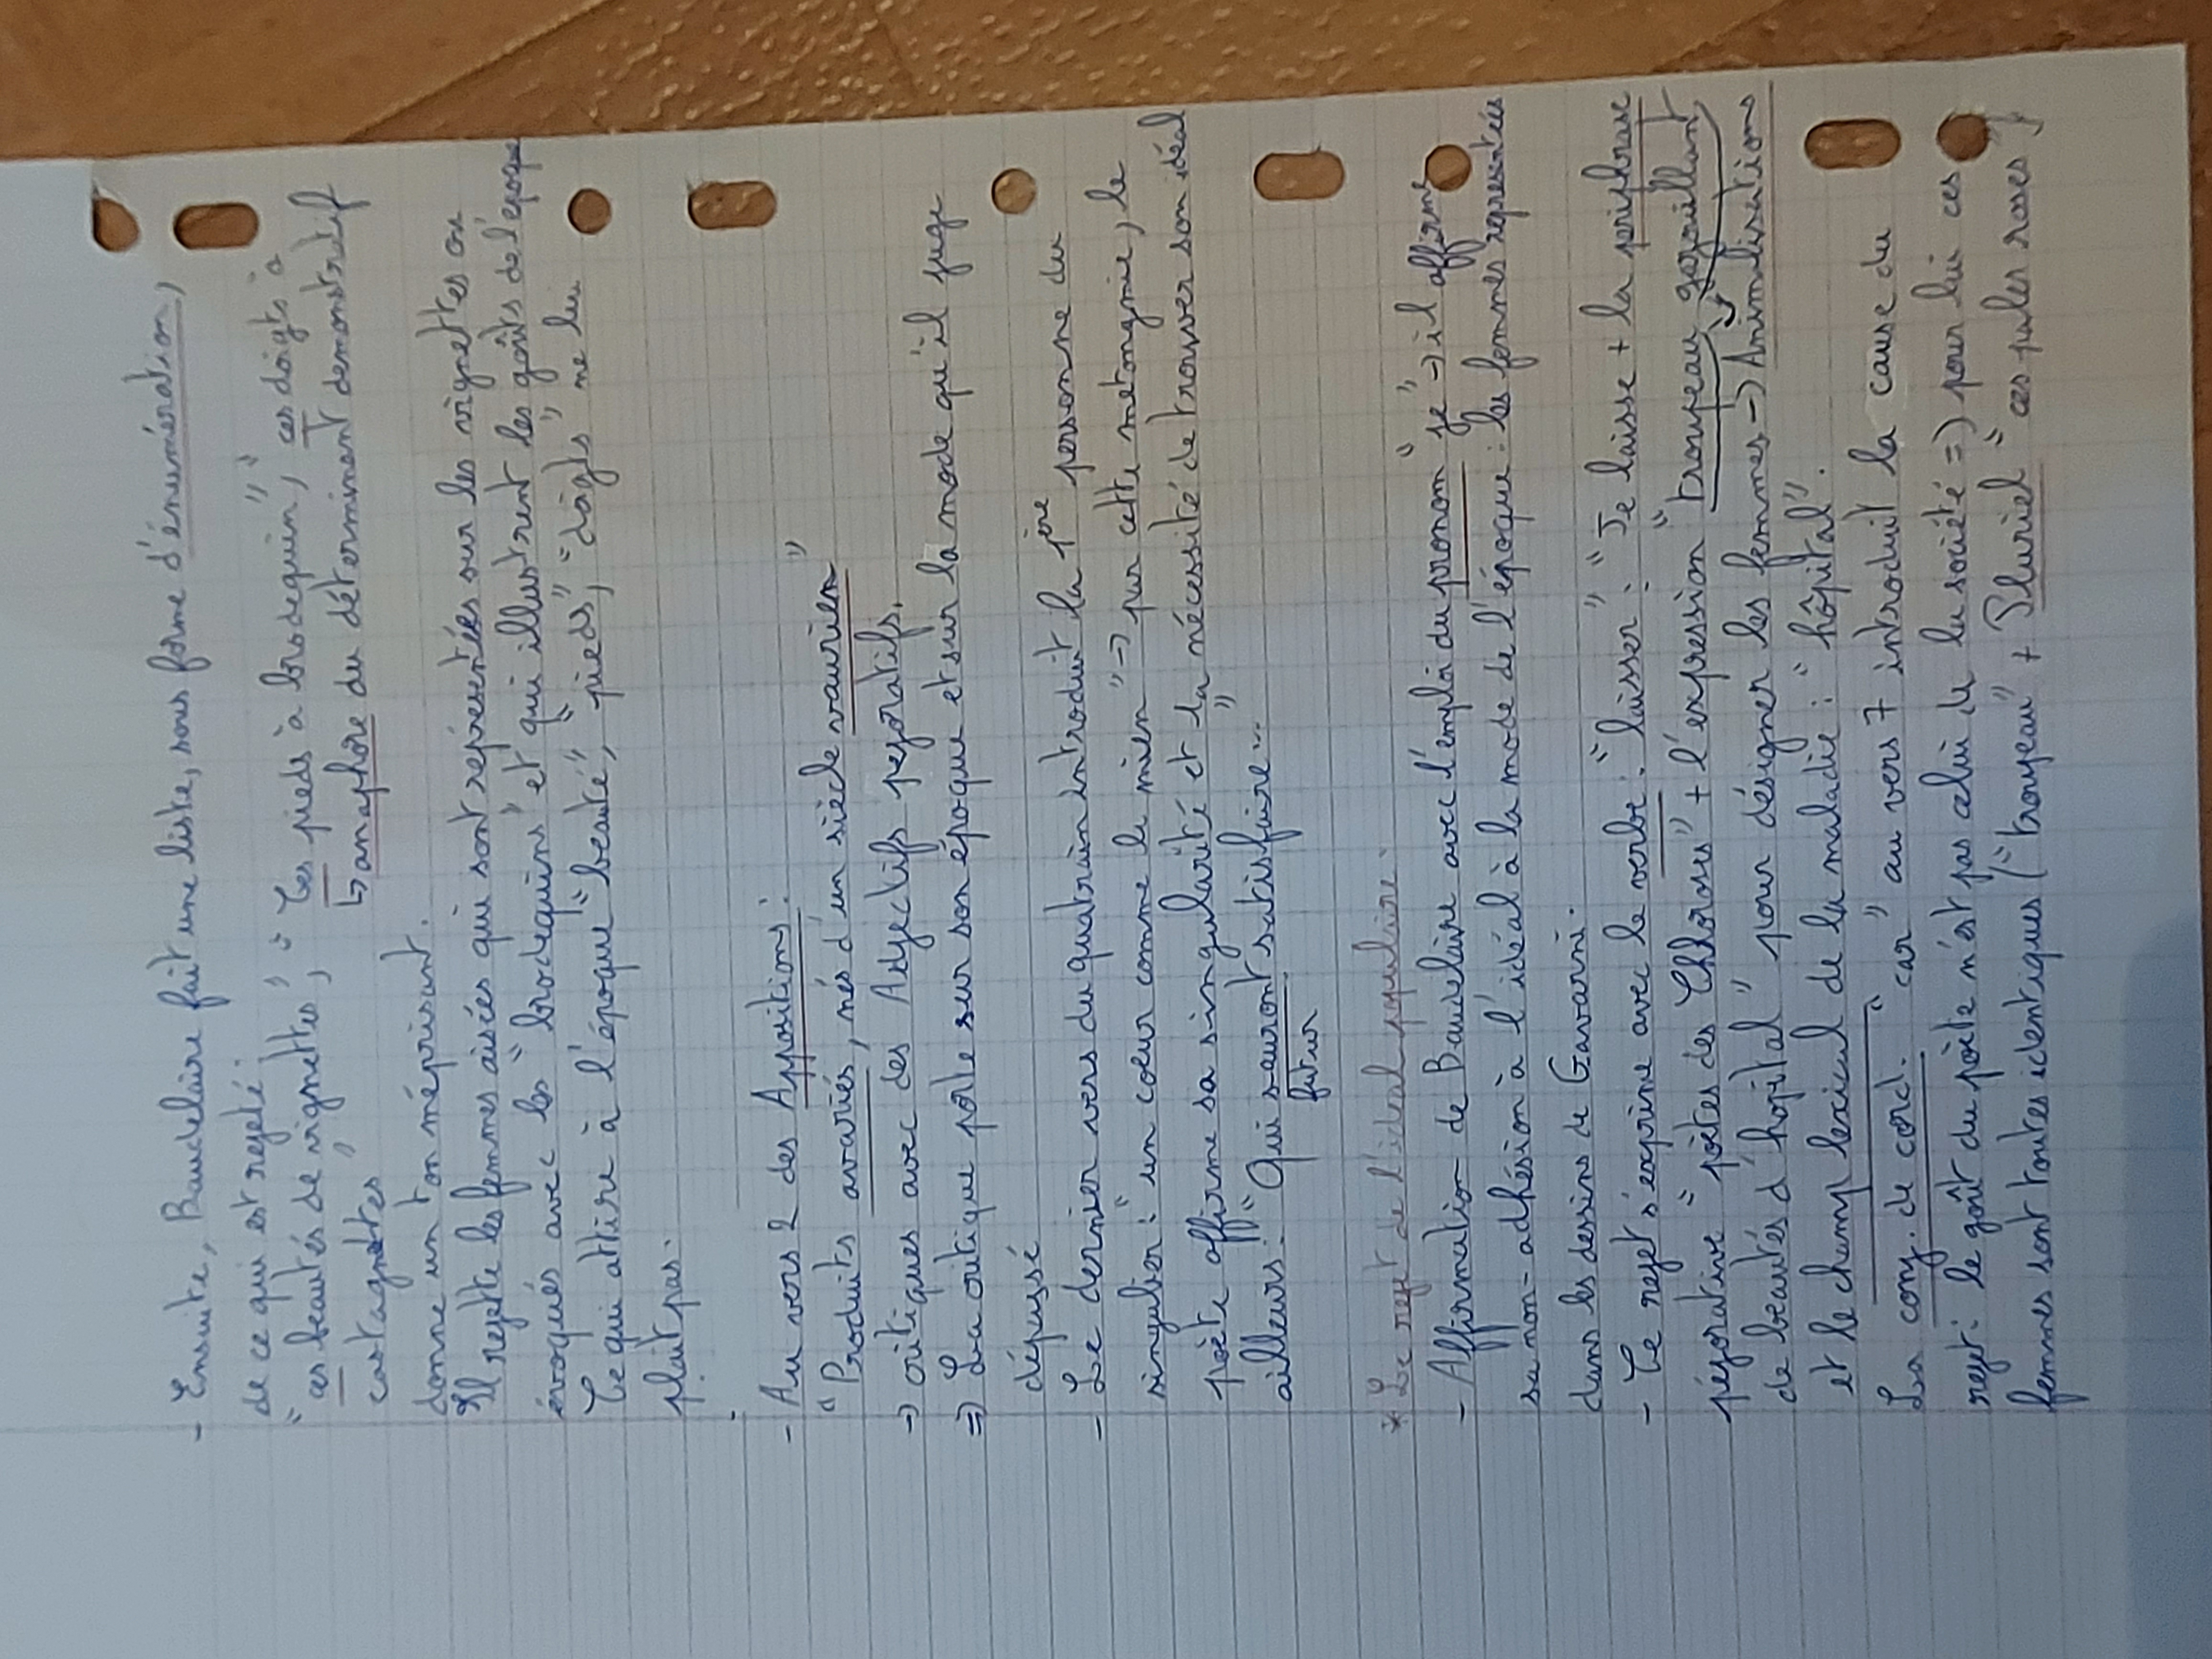 - Ensuite, Baudelaire fait une liste, sous forme d'énumération,
de ce qui est rejeté.
"ces beautés de vignettes", "Ces pieds à brodequin", "ces doigts à
castagnettes" ↳ anaphore du déterminant demonstratif
donne un ton méprisant.
Il rejette les femmes aisées qui sont représentées sur les vignettes ou
évoqués avec les "brodequins" et qui illustrent les goûts de l'époque
Ce qui attire à l'époque "beauté", "pieds", "doigts" ne lui
plait pas.
- Au vers 2 des Appositions :
"Produits avariés, nés d'un siècle vaurien"
-> critiques avec des Adjectifs pejoratifs.
=> La critique porte sur son époque et sur la mode qu'il juge
dépassé
- Le dernier vers du quatrain introduit la 1ère personne du
singulier : "un cœur comme le mien" -> par cette métonymie, le
poète affirme sa singularité et la nécessité de trouver son idéal
ailleurs. "Qui sauront satisfaire..."
futur
* Le rejet de l'idéal populaire.
- Affirmation de Baudelaire avec l'emploi du pronom "je" -> il affirme
sa non-adhésion à l'idéal à la mode de l'époque : les femmes représentées
dans les dessins de Gavarni.
- Ce rejet s'exprime avec le verbe : "laisser" : "Je laisse + la périphrase
péjorative "poètes des Chloroses" + l'expression "troupeau gazouillant
de beautés d'hopital" pour désigner les femmes -> Animalisation
et le champ lexical de la maladie : "hôpital".
La conj. de cord. "car" au vers 7 introduit la cause du
rejet : le goût du poète n'est pas celui de la société => pour lui ces
femmes sont toutes identiques ("troupeau" + Pluriel "ces pales roses")